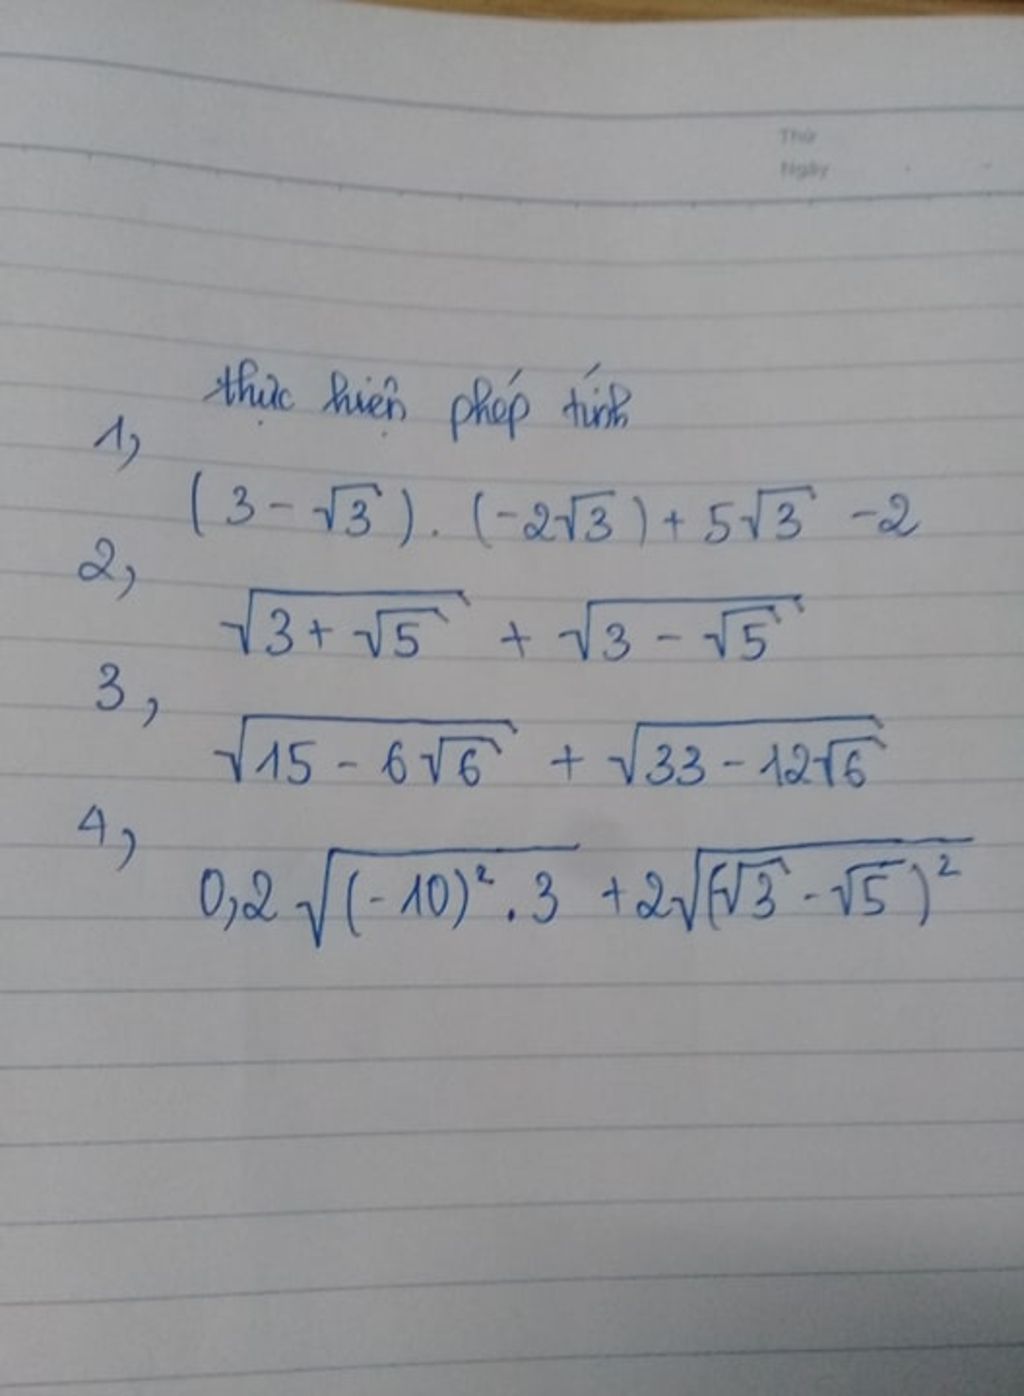 Thứ
Ngày
thực hiện phép tính
1,
(3 - √3) . (-2√3) + 5√3 - 2
2,
√(3 + √5) + √(3 - √5)
3,
√(15 - 6√6) + √(33 - 12√6)
4,
0,2 √((-10)² . 3) + 2√((√3 - √5)²)